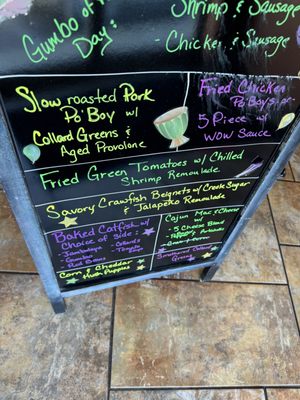 Gumbo of the
Day:
Shrimp & Sausage
- Chicken & Sausage
Slow roasted Pork
Po' Boy w/
Collard Greens &
Aged Provolone
Fried Chicken
Po' Boy
5 Piece w/
WOW Sauce
Fried Green Tomatoes w/ Chilled
Shrimp Remoulade
Savory Crawfish Beignets w/ Creole Sugar
& Jalapeño Remoulade
Baked Catfish w/
Choice of Side:
- Jambalaya
- Gumbo
- Red Beans
- Collards
- Tomato
Cajun Mac & Cheese
w/
- 5 Cheese Blend
Smothered
Greens
Corn & Cheddar
Hush Puppies